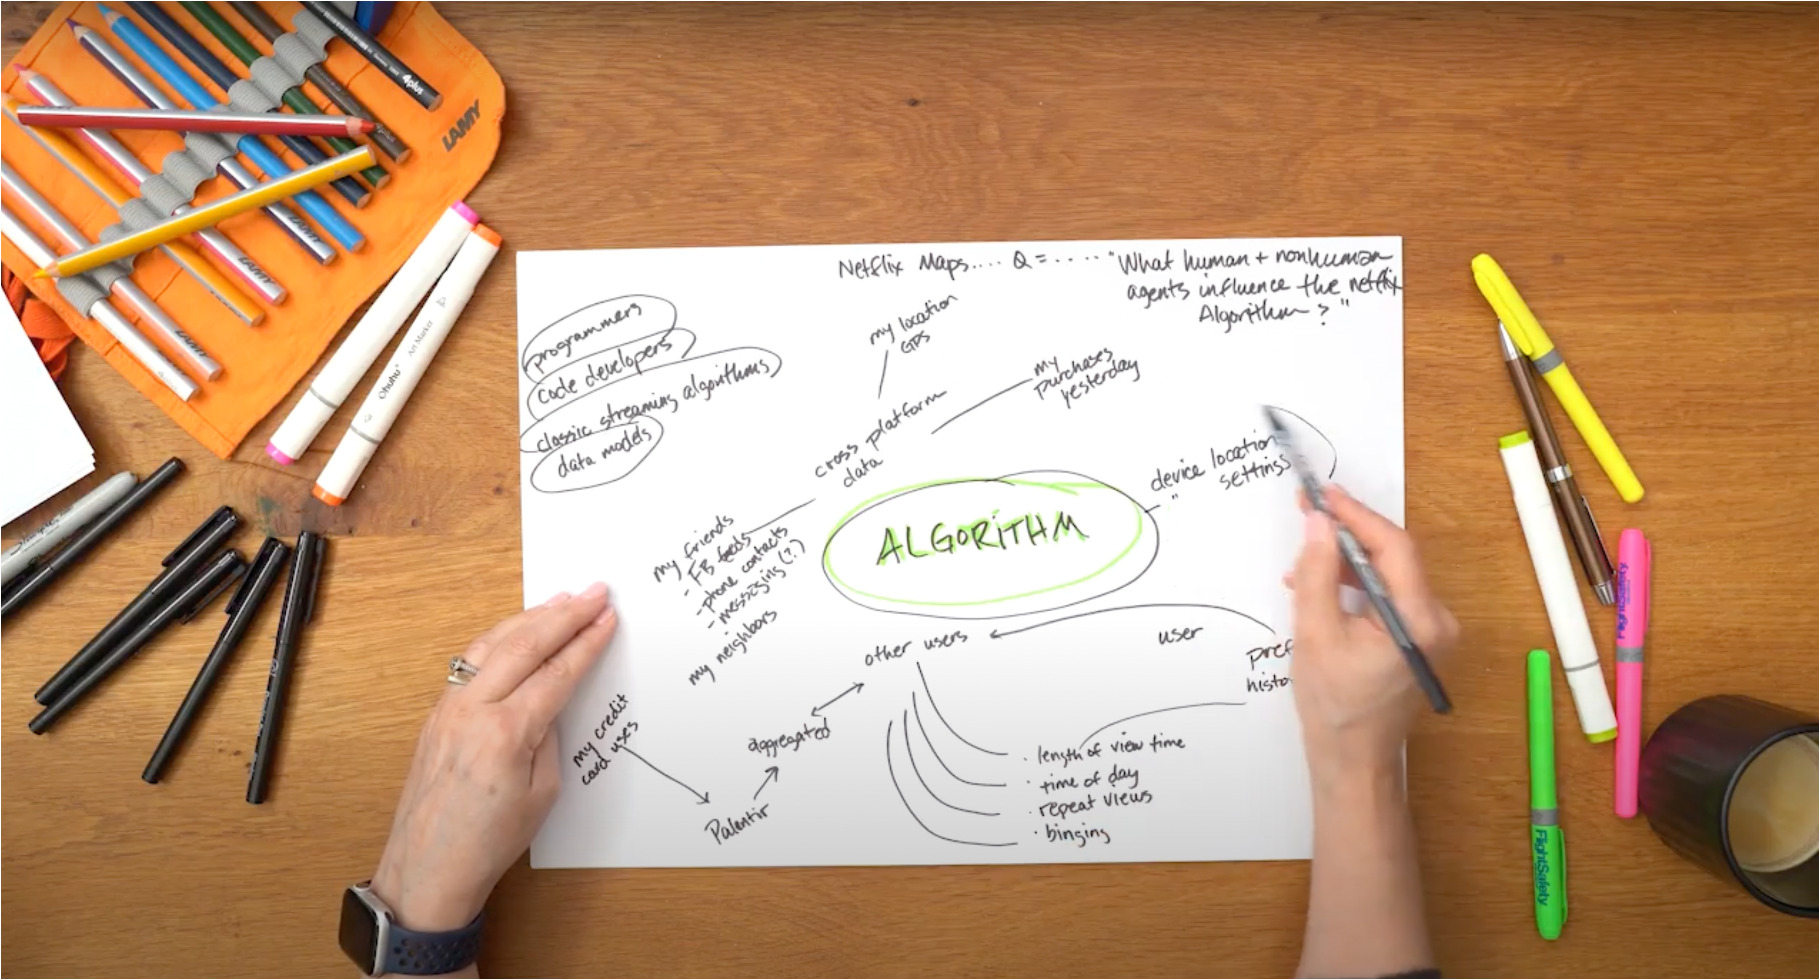 Netflix Maps.... Q = ..... "What human + nonhuman
agents influence the netflix
Algorithm ? "
programmers
code developers
classic streaming algorithms
data models
my location
GPS
my
purchases
yesterday
cross platform
data
device location
settings
"
ALGORITHM
my friends
- FB feeds
- phone contacts
- messaging (?)
my neighbors
other users
user
pref
histo
my credit
card uses
aggregated
Palentir
· length of view time
· time of day
· repeat views
· binging
LAMY
4plus
LAMY
LAMY
LAMY
Ohuhu
Art Marker
Sharpie
FlightSafety
FlightSafety